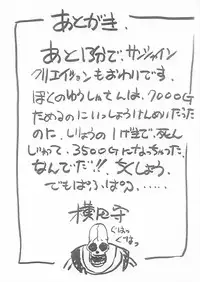 あとがき、
あと13分で、サンシャイン
クリエイションもおわりです、
ぼくのゆうしゃさんは、7000G
ためるのにいっしょうけんめいだった
のに、しりょうの1げきで、死ん
じゃって、3500Gになっちゃった、
なんでだ!!、ちくしょう、
でもぱふ、ぱふ、……、
横田守
ぐはっ
ぐはっ